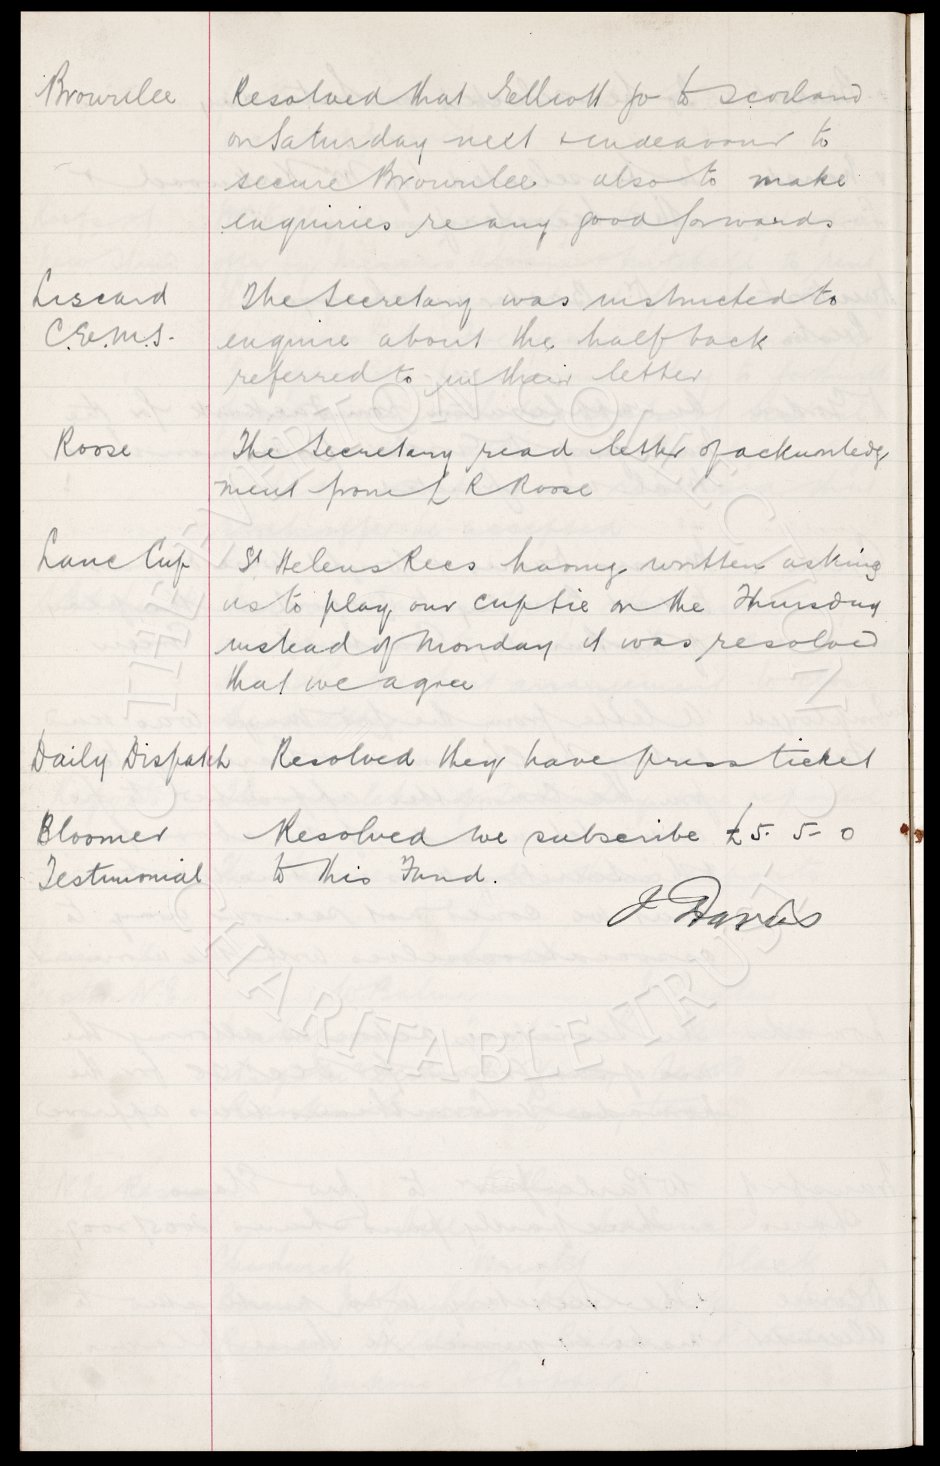 Brownlee Resolved that Elliott go to Scotland
on Saturday next & endeavour to
secure Brownlee also to make
enquiries re any good forwards
Liscard The Secretary was instructed to
C.E.M.S. enquire about the half back
referred to in their letter
Roose The Secretary read letter of acknowledg
ment from L R Roose
Lanc Cup St Helens Recs having written asking
us to play our cup tie on the Thursday
instead of Monday it was resolved
that we agree
Daily Dispatch Resolved they have press ticket
Bloomer Resolved we subscribe £5-5-0
Testimonial to this Fund.
J Davies
THE EVERTON COLLECTION
CHARITABLE TRUST